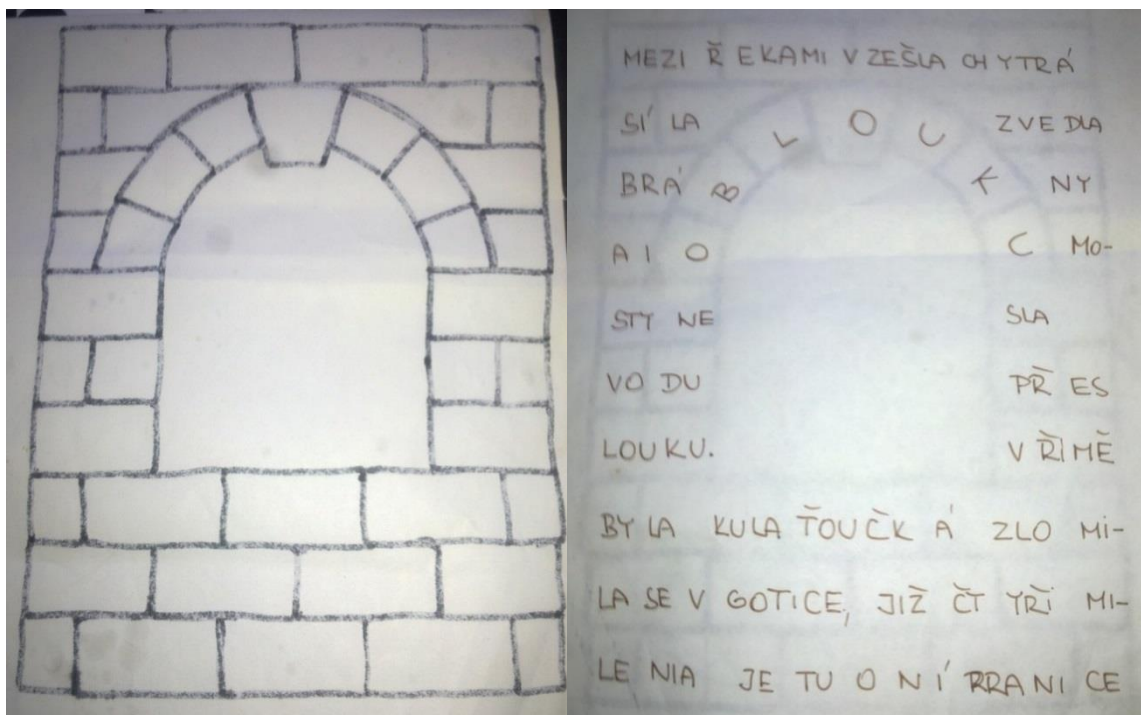 MEZI ŘEKAMI VZEŠLA CHYTRÁ
SÍLA OBLOUKU ZVEDLA
BRÁNY
A I MO-
STY NESLA
VODU PŘES
LOUKU. V ŘÍMĚ
BYLA KULAŤOUČKÁ ZLOMI-
LA SE V GOTICE, JIŽ ČTYŘI MI-
LENIA JE TU O NÍ PRANICE